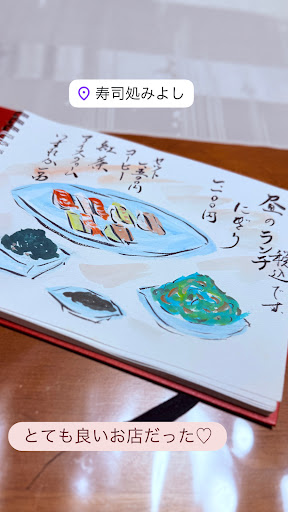 寿司処みよし
昼のランチ
税込です。
にぎり
一一〇〇円
セット
コーヒー
紅茶
アイスクリーム
いずれか一
とても良いお店だった♡